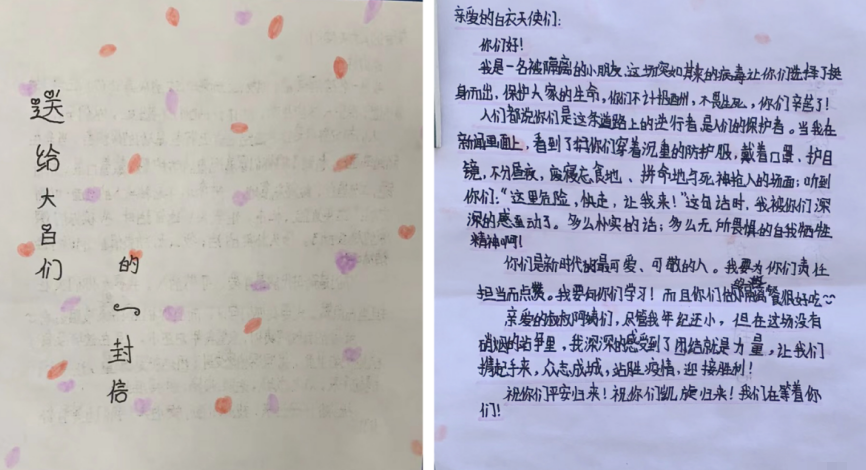 送给大白们
的一封信
亲爱的白衣天使们:
你们好!
我是一名被隔离的小朋友,这场突如其来的病毒让你们选择了挺
身而出,保护大家的生命,你们不计报酬,不畏生死,你们辛苦了!
人们都说你们是这条道路上的逆行者是人们的保护者。当我在
新闻画面上,看到了你们穿着沉重的防护服,戴着口罩,护目
镜,不分昼夜,废寝忘食地、拼命地与死神抢人的场面;听到
你们:“这里危险,快走,让我来!”这句话时,我被你们深
深的感动了。多么朴实的话;多么无所畏惧的自我牺牲
精神啊!
你们是新时代最可爱、可敬的人。我要为你们责任
担当而点赞。我要向你们学习!而且你们做的隔离餐很好吃
亲爱的叔叔阿姨们,尽管我年纪还小,但在这场没有
硝烟的战争里,我深深的感受到了团结就是力量,让我们
携起手来,众志成城,战胜疫情,迎接胜利!
祝你们平安归来!祝你们凯旋归来!我们在等着你
们!